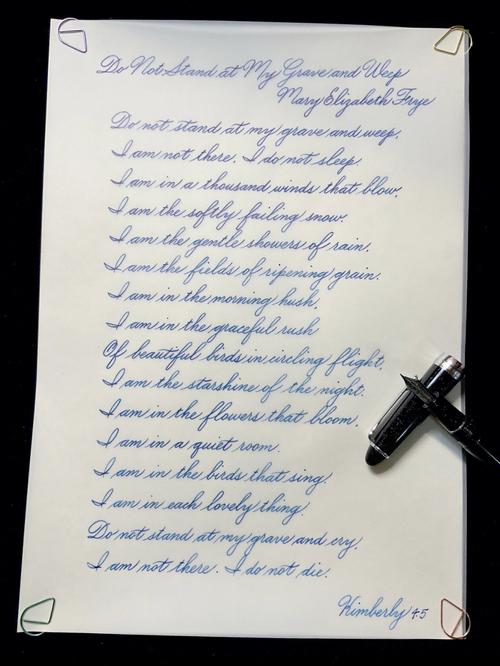 Do Not Stand at My Grave and Weep
Mary Elizabeth Frye
Do not stand at my grave and weep,
I am not there. I do not sleep.
I am in a thousand winds that blow,
I am the softly falling snow.
I am the gentle showers of rain.
I am the fields of ripening grain.
I am in the morning hush,
I am in the graceful rush
Of beautiful birds in circling flight,
I am the starshine of the night.
I am in the flowers that bloom,
I am in a quiet room.
I am in the birds that sing.
I am in each lovely thing.
Do not stand at my grave and cry,
I am not there. I do not die.
Kimberly 4·5